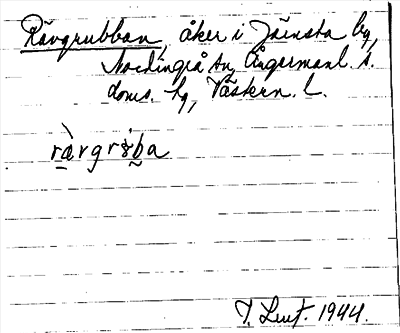 Rävgrubban, åker i Järnsta by,
Nordingrå sn, Ångermanl. s.
doms. hg, Västern. l.
ràvgrøba
T. Leuf. 1944.